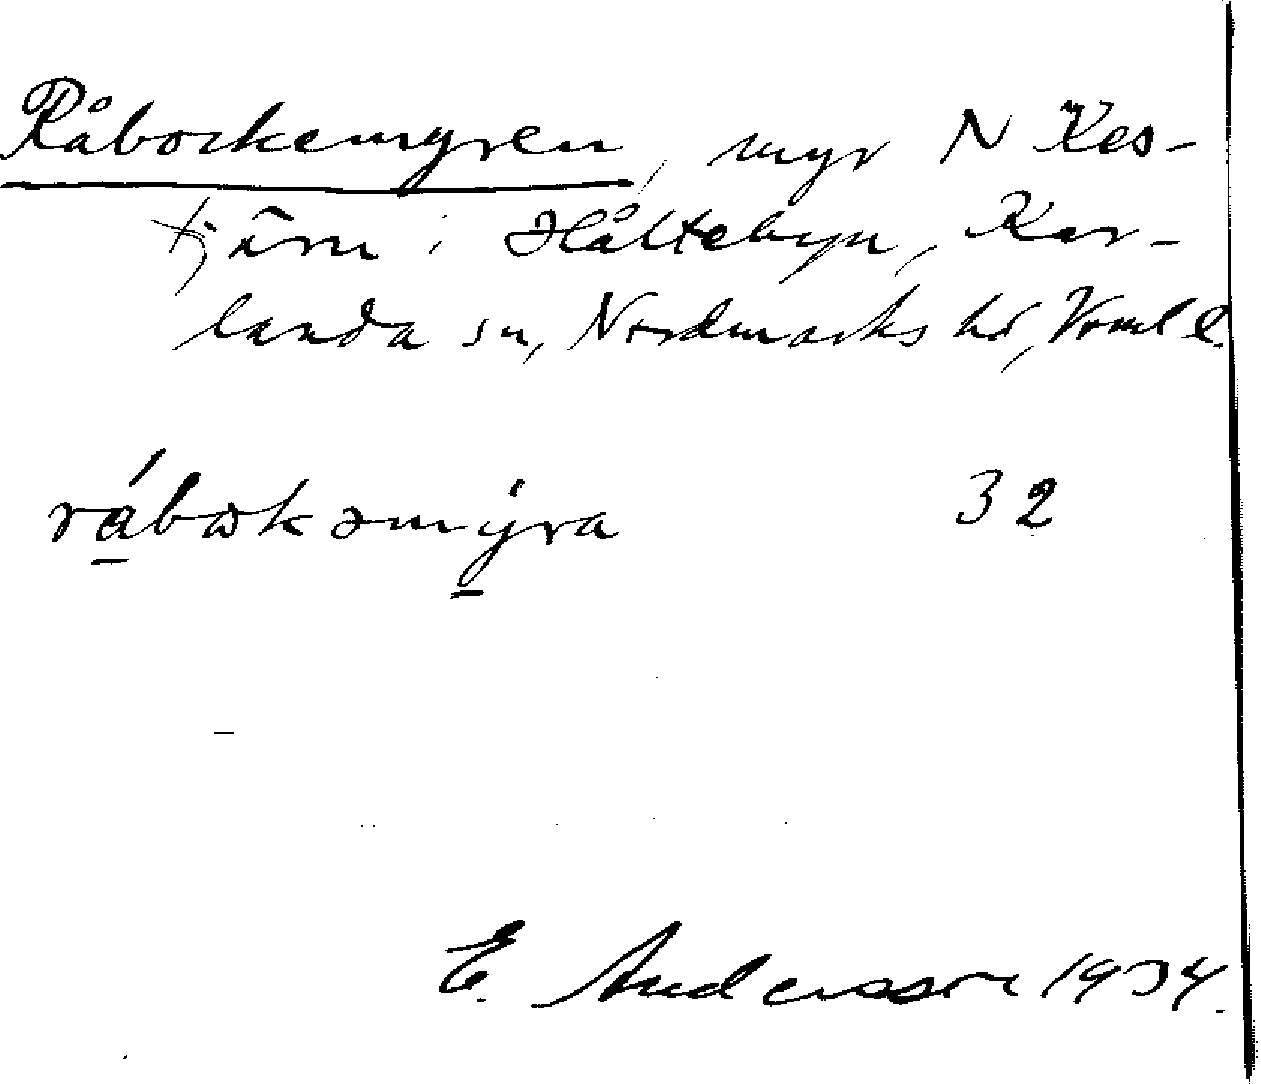 Råbockemyren, myr N Kes-
tjärn i Håltebyn, Kar-
landa sn, Nordmarks hd, Vrml l.
rábokəmýra 32
E. Andersson 1934.